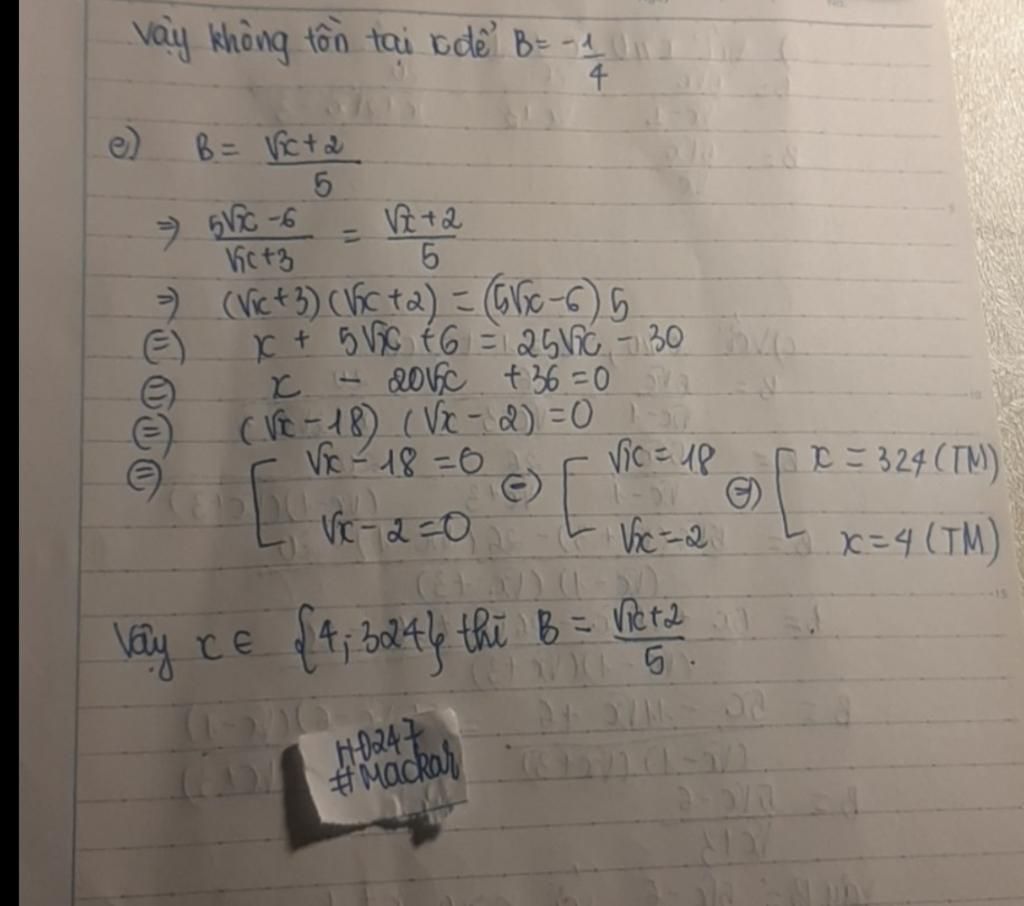 Vậy không tồn tại x để B = -1/4
e) B = (√x + 2)/5
⇒ (5√x - 6)/(√x + 3) = (√x + 2)/5
⇒ (√x + 3)(√x + 2) = (5√x - 6) 5
⇔ x + 5√x + 6 = 25√x - 30
⇔ x - 20√x + 36 = 0
⇔ (√x - 18) (√x - 2) = 0
⇔ [ √x - 18 = 0 ⇔ [ √x = 18 ⇔ [ x = 324 (TM)
√x - 2 = 0 √x = 2 x = 4 (TM)
Vậy x ∈ {4; 324} thì B = (√x + 2)/5.
HD247
#Mackar